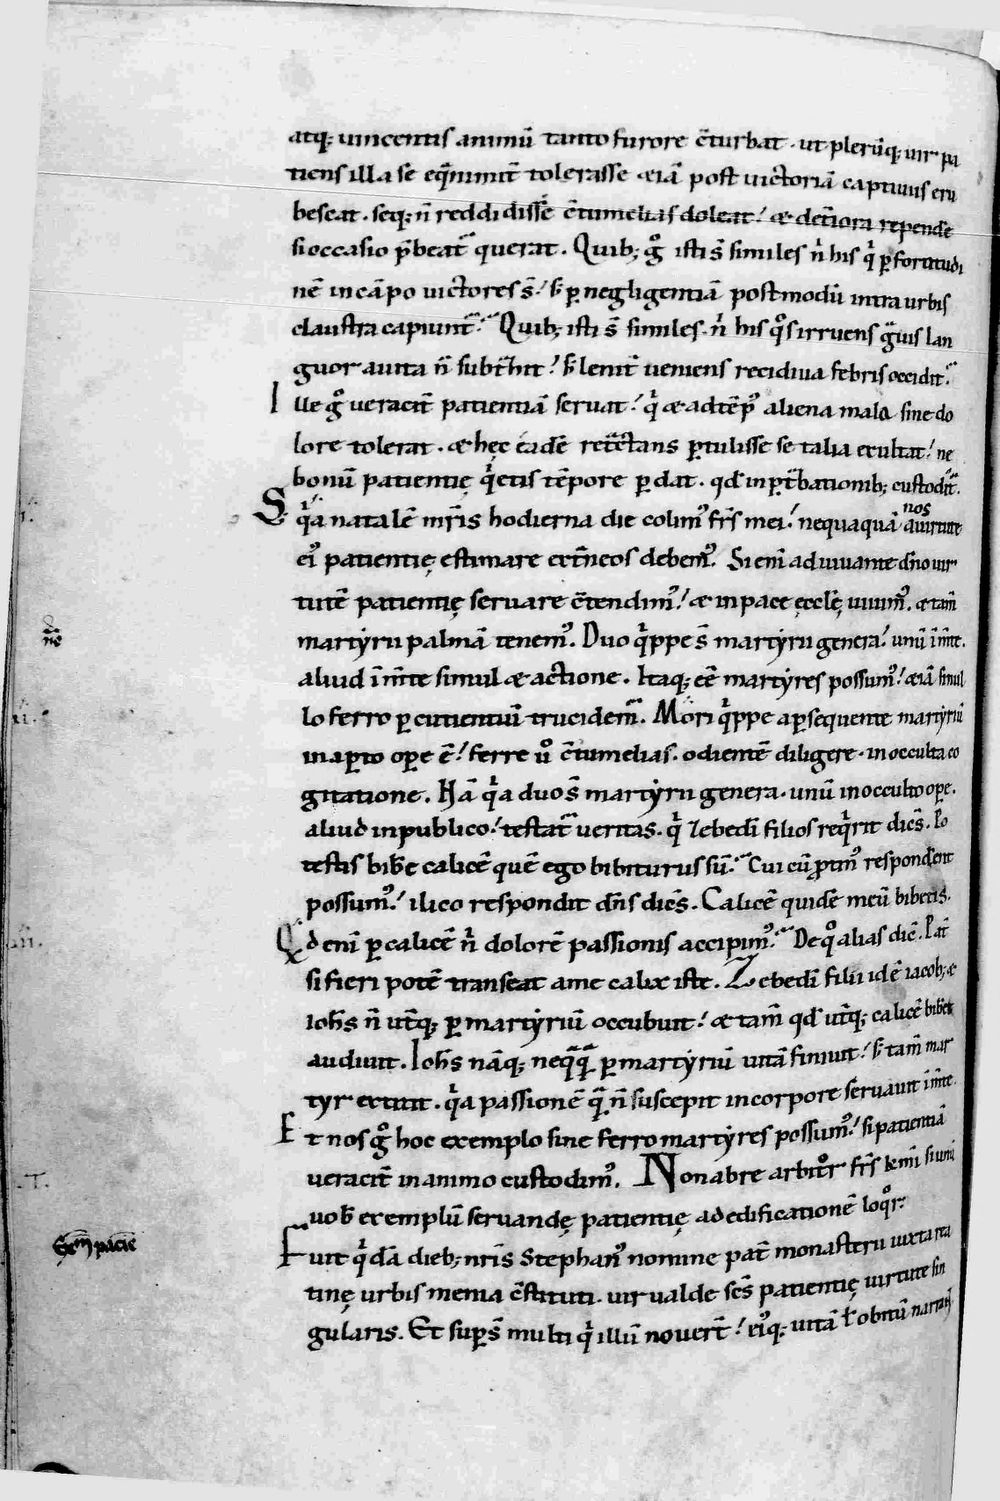 atq; uincentis animū tanto furore c̄turbat · ut plerūq; uir pa
tiens illa se eq̄nimit̄ tolerasse &iā post uictoriā captiuus eru
bescat · seq; n̄ reddidisse c̄tumelias doleat! & det̄iora repende
si occasio p̄beat᷑ querat · Quib; g° isti s̄ similes nⁱ his qⁱ ꝑ fortitudi
nē in cāpo uictores s̄! s; ꝑ negligentiā postmodū intra urbis
claustra capiunt᷑. Quib; isti s̄ similes · nⁱ his q°s irruens g̃uis lan
guor a uita n̄ subt̄hit! s; lenit̄ ueniens recidiua febris occidit.
Ille g° ueracit̄ patientiā seruat! qⁱ & ad tēp᷒ aliena mala sine do
lore tolerat · & hęc eadē ret̄c̄tans ꝑtulisse se talia exultat! ne
bonū patientię qⁱetis tēpore ꝑdat · qd̄ in ꝑt̄bationib; custodit.
S; qⁱa natalē mr̄is hodierna die colim᷒ frs̄ mei! nequaquā nos a uirtute
ei᷒ patientię estimare ext̄neos debem᷒. Si enī adiuuante dn̄o uir
tutē patientię seruare c̄tendim᷒! & in pace ęcclę uiuim᷒. & tam̄
martyrii palmā tenem᷒. Duo qⁱppe s̄ martyrii genera! unū ī m̄te.
aliud ī m̄te simul & actione. Itaq; eē martyres possum᷒! &iā si nul
lo ferro ꝑcutientiū trucidem᷑. Mori qⁱppe a ꝑsequente martyriū
in aꝑto oꝑe ē! ferre u° c̄tumelias · odientē diligere · in occulta co
gitatione. Nā qⁱa duo s̄ martyrii genera · unū in occulto oꝑe.
aliud in publico! testat᷑ ueritas. qⁱ Zebedī filios reqⁱrit dicēs. Po
testis bibe calicē quē ego bibiturus sū. Cui cū ꝓtin᷒ respondent
possum᷒! ilico respondit dn̄s dicēs. Calicē quidē meū bibetis.
Qd enī ꝑ calicē nⁱ dolorē passionis accipim᷒. De q° alias dic̄. Pat̄
si fieri potē transeat a me calix iste. Zebedī filii id ē iacob; &
ioh̄s n̄ ut̄q; ꝑ martyriū occubuit! & tam̄ qd̄ ut̄q; calicē bibet
audiuit. Ioh̄s nāq; neqⁿqⁿ ꝑ martyriū uitā finiuit! s; tam̄ mar
tyr extitit. qⁱa passionē qⁿ n̄ suscepit in corpore seruauit ī m̄te.
Et nos g° hoc exemplo sine ferro martyres possum᷒! si patientiā
ueracit̄ in animo custodim᷒. Non ab re arbitr° frs̄ km̄i si unū
uob̄ exemplū seruandę patientię ad edificationē loq°r.
Fuit qⁱdā dieb; nr̄is Stephan᷒ nomine pat̄ monasterii iuxta rea
tinę urbis menia c̄stituti · uir ualde scs̄ patientię uirtute sin
gularis. Et suꝑs̄ multi qⁱ illū nouert̄! ei᷒q; uitā ł obitū narrant